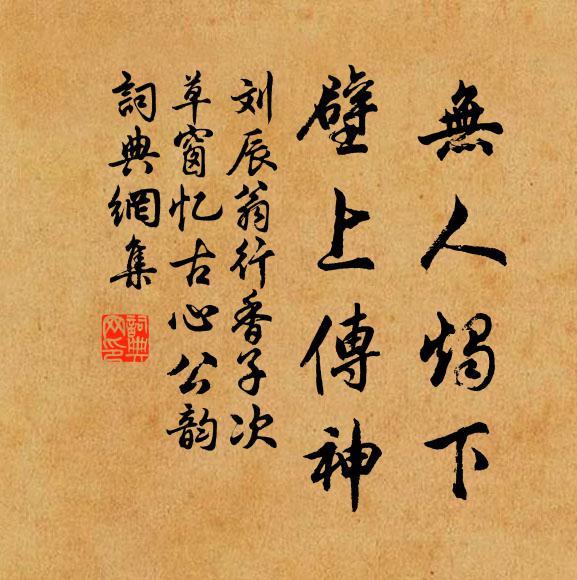 無人燭下
壁上傳神
刘辰翁行香子次
草窗忆古心公韵
詞典網集
詞典網印